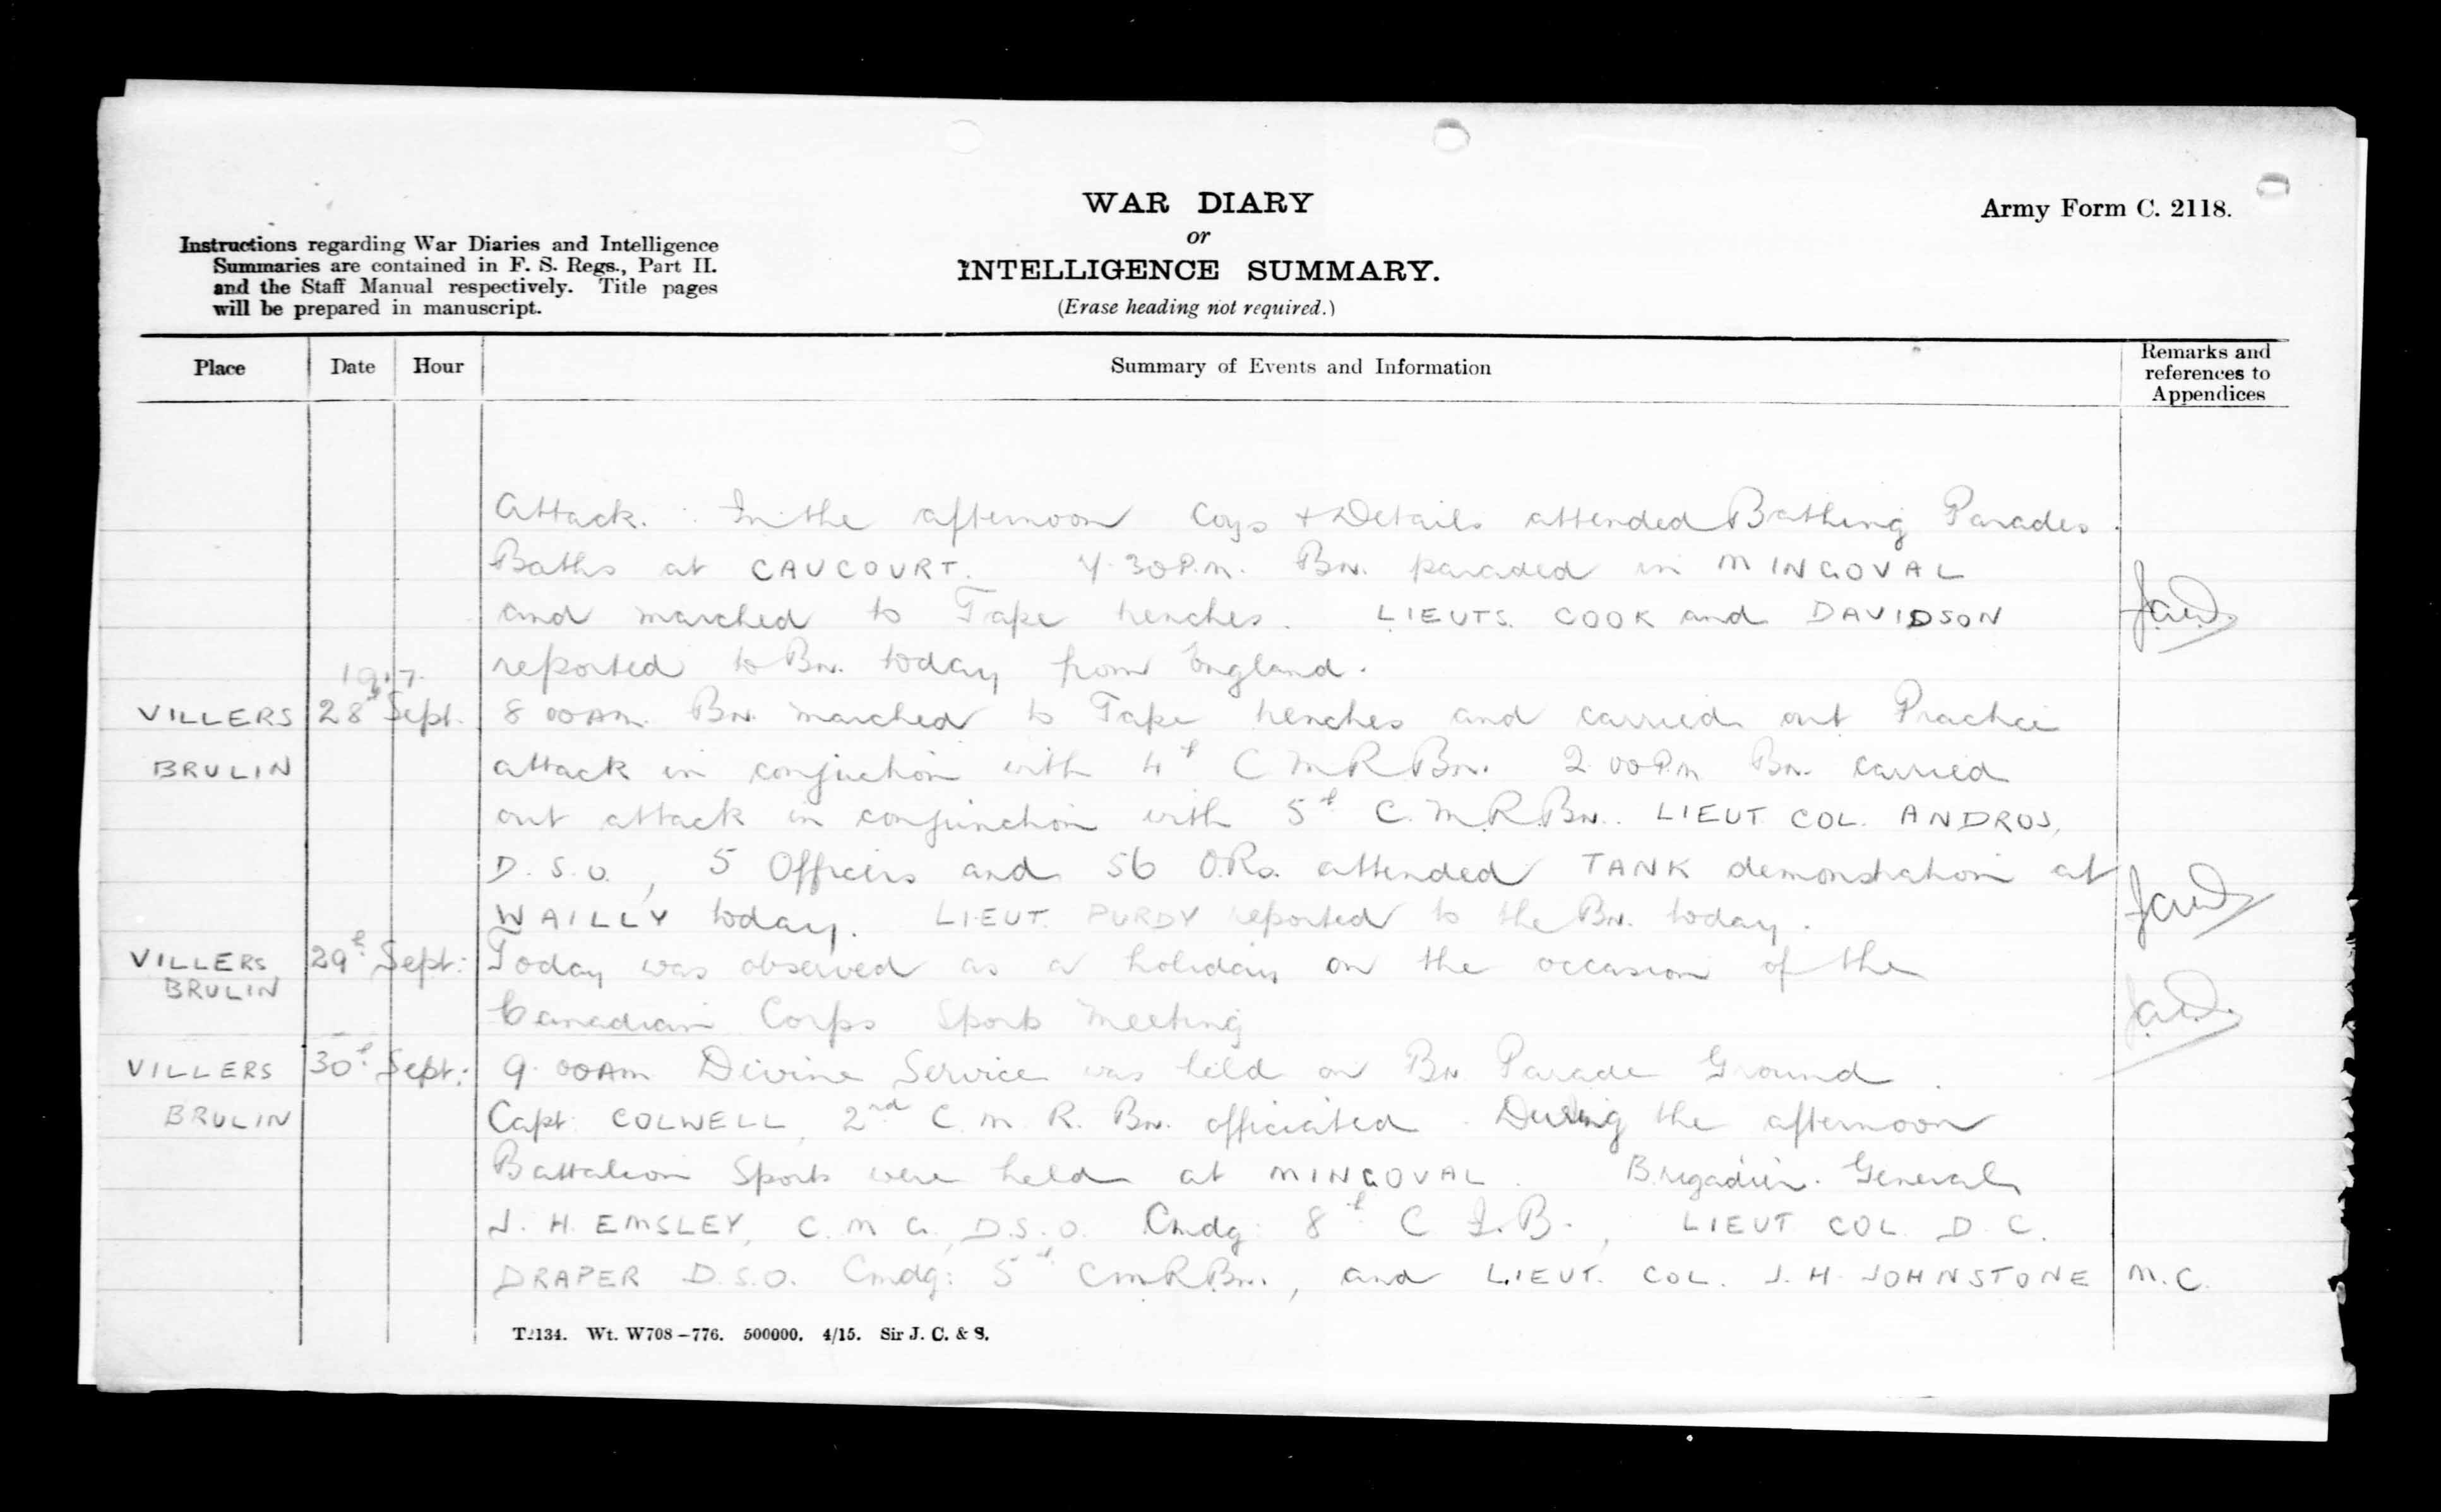 WAR DIARY
or
INTELLIGENCE SUMMARY.
(Erase heading not required.)
Army Form C. 2118.
Instructions regarding War Diaries and Intelligence
Summaries are contained in F. S. Regs., Part II.
and the Staff Manual respectively. Title pages
will be prepared in manuscript.
Place Date Hour Summary of Events and Information Remarks and references to Appendices
Attack. In the afternoon Coys + Details attended Bathing Parades.
Baths at CAUCOURT. 7.30 P.M. Bn. paraded in MINGOVAL
and marched to Tape trenches. LIEUTS. COOK and DAVIDSON
reported to Bn. today from England.
1917.
VILLERS 28th Sept. 8 00 AM. Bn. marched to Tape trenches and carried out Practice
BRULIN attack in conjuction with 4th C M R Bn. 2.00 P.m Bn. carried
out attack in conjunction with 5th C.M.R.Bn. LIEUT COL. ANDROS,
D.S.O., 5 Officers and 56 O.Rs. attended TANK demonstration at
WAILLY today. LIEUT. PURDY reported to the Bn. today.
VILLERS 29th Sept: Today was observed as a holiday on the occasion of the
BRULIN
Canadian Corps Sports Meeting
VILLERS 30th Sept: 9.00 AM Divine Service was held on Bn Parade Ground.
BRULIN Capt. COLWELL, 2nd C.M.R. Bn. officiated. During the afternoon
Battalion Sports were held at MINGOVAL. Brigadier. General
J. H. EMSLEY, C.M.G., D.S.O. Cmdg: 8th C.I.B., LIEUT COL. D. C.
DRAPER D.S.O. Cmdg: 5th C.M.R.Bn., and LIEUT. COL. J. H. JOHNSTONE M.C.
T2134. Wt. W708—776. 500000. 4/15. Sir J. C. & S.